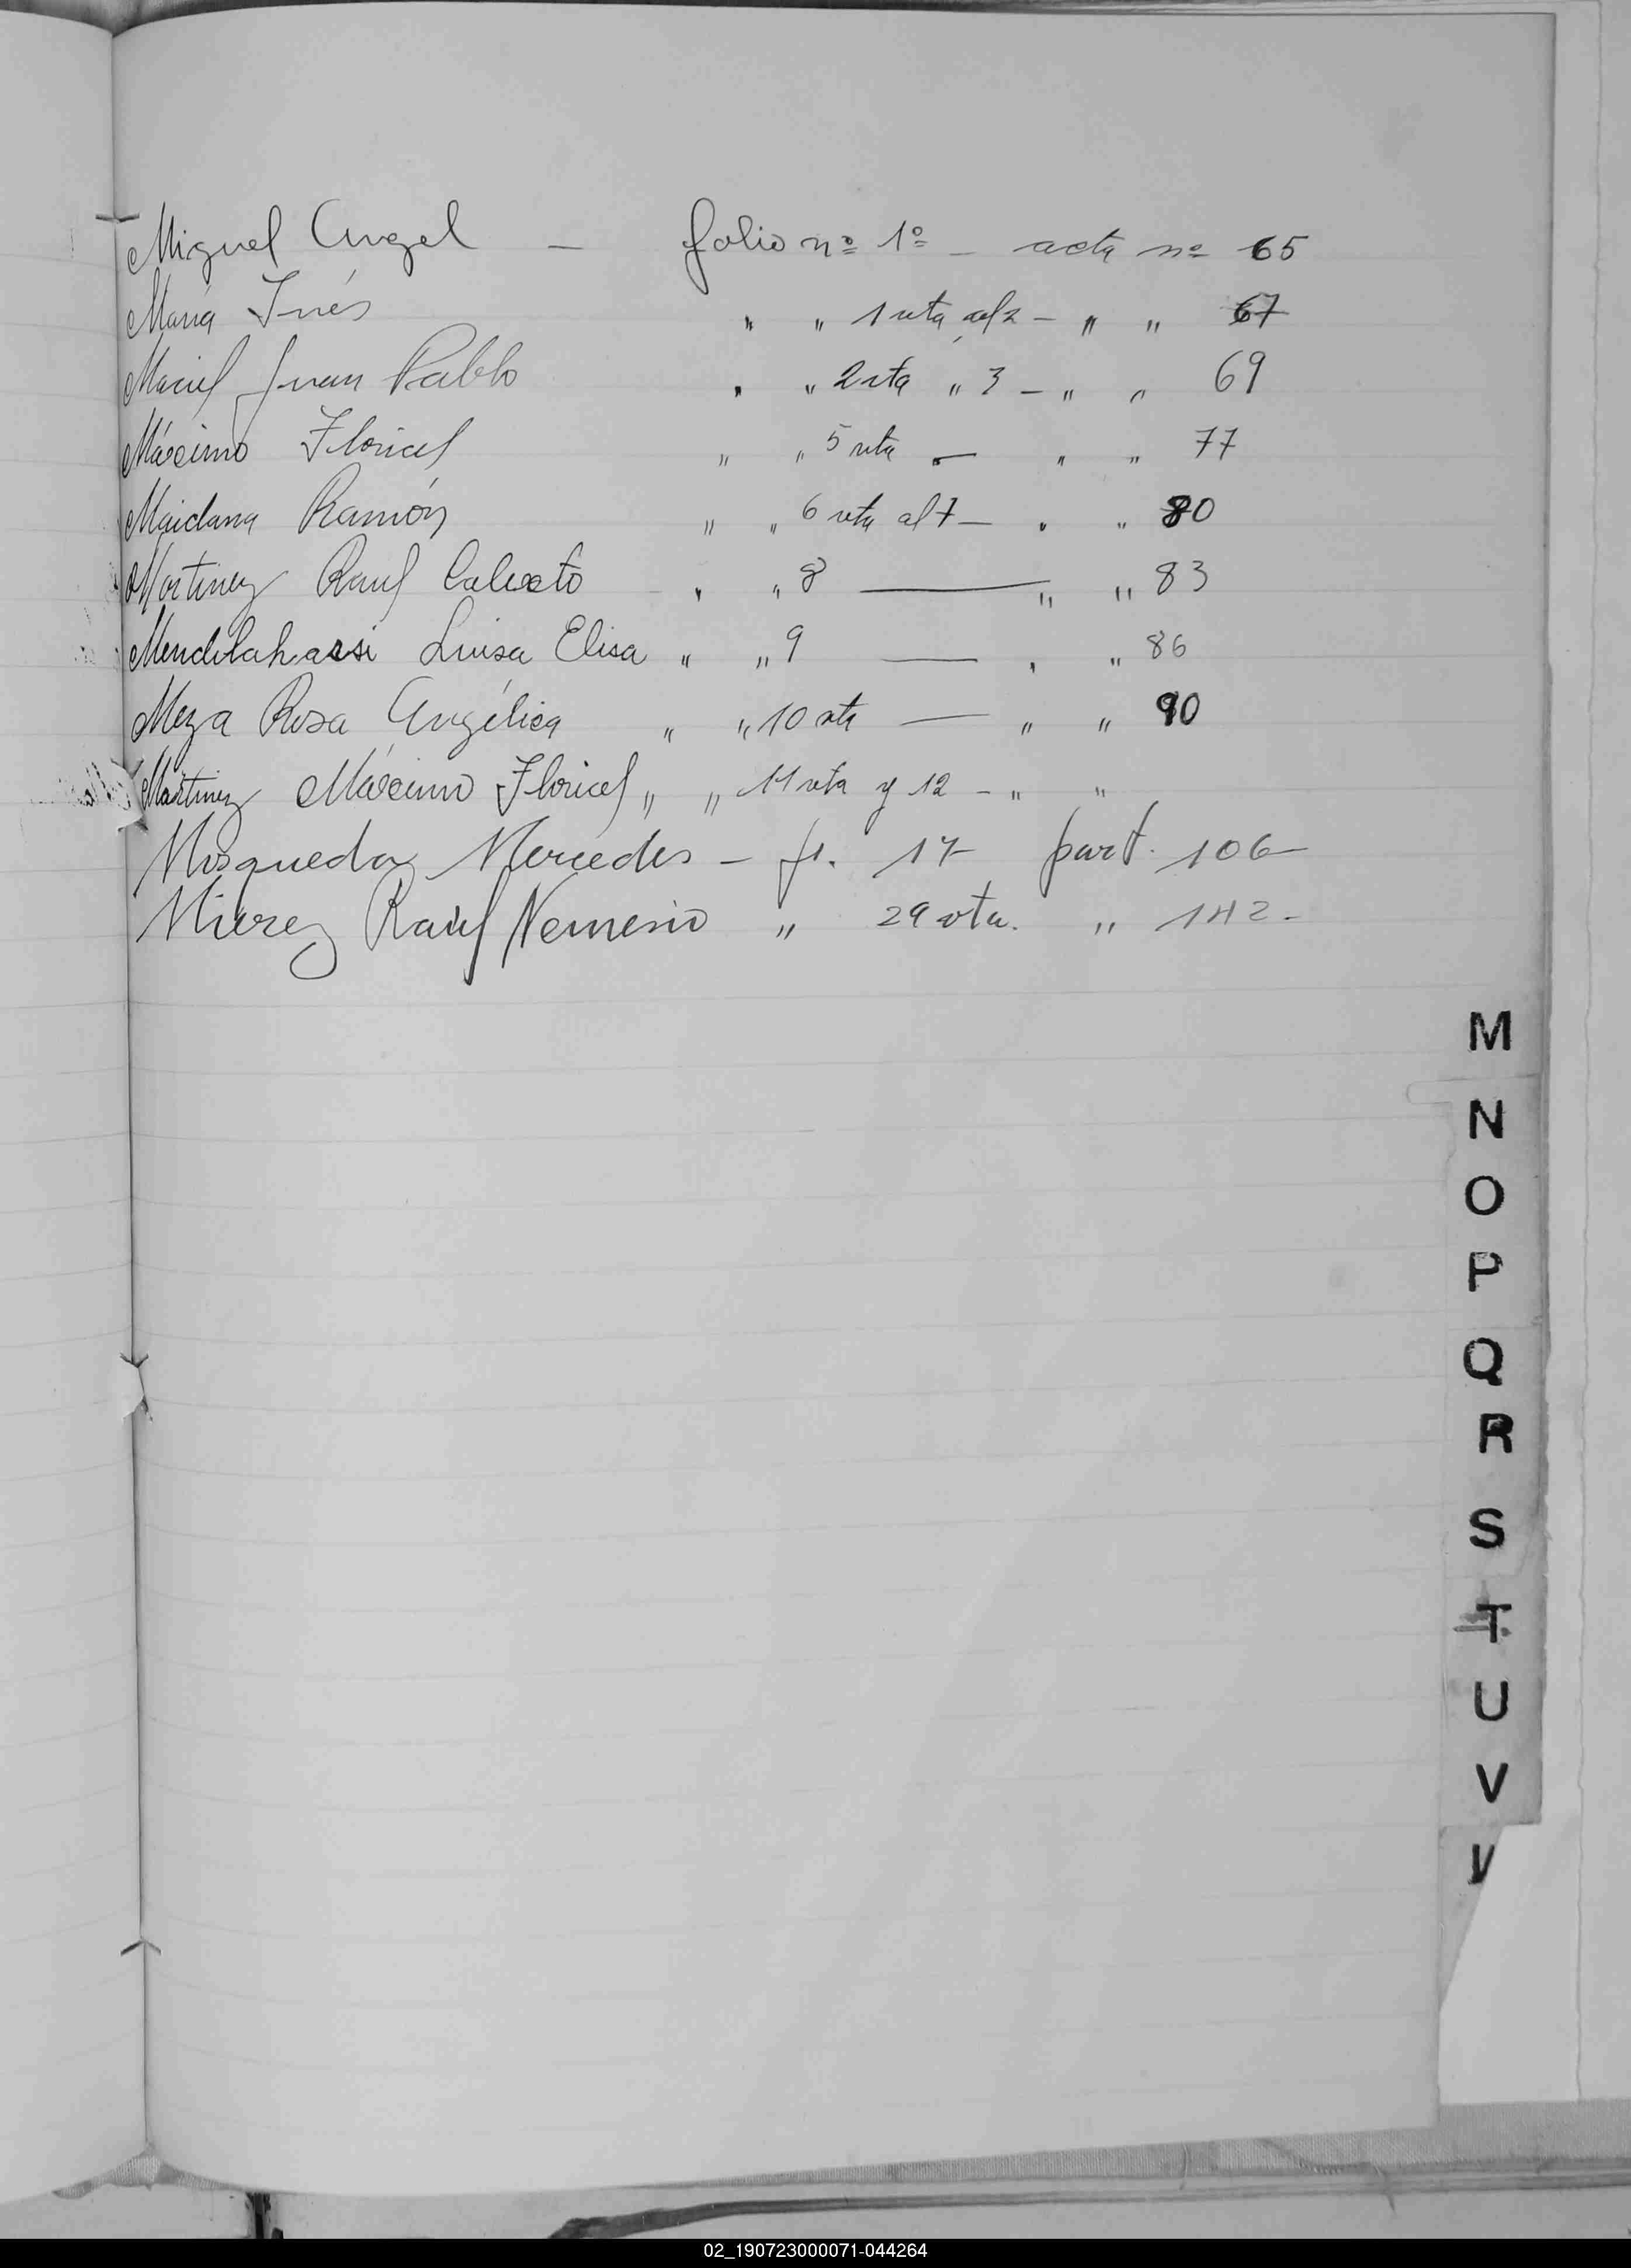 Miguel Angel — folio nº 1º — acta nº 65
María Inés " " 1 vta al 2 — " " 67
Maciel Juan Pablo " " 2 vta " 3 — " " 69
Máximo Floricel " " 5 vta — " " 77
Maidana Ramón " " 6 vta al 7 — " " 80
Martinez Raul Calixto " " 8 — " " 83
Mendilaharsi Luisa Elisa " " 9 — " " 86
Meza Rosa Angélica " " 10 vta — " " 90
Martinez Máximo Floricel " " 11 vta y 12 — " "
Mosqueda Mercedes — fº. 17 part. 106
Mierez Raúl Nemesio " 29 vta. " 142-
M
N
O
P
Q
R
S
T
U
V
02_190723000071-044264